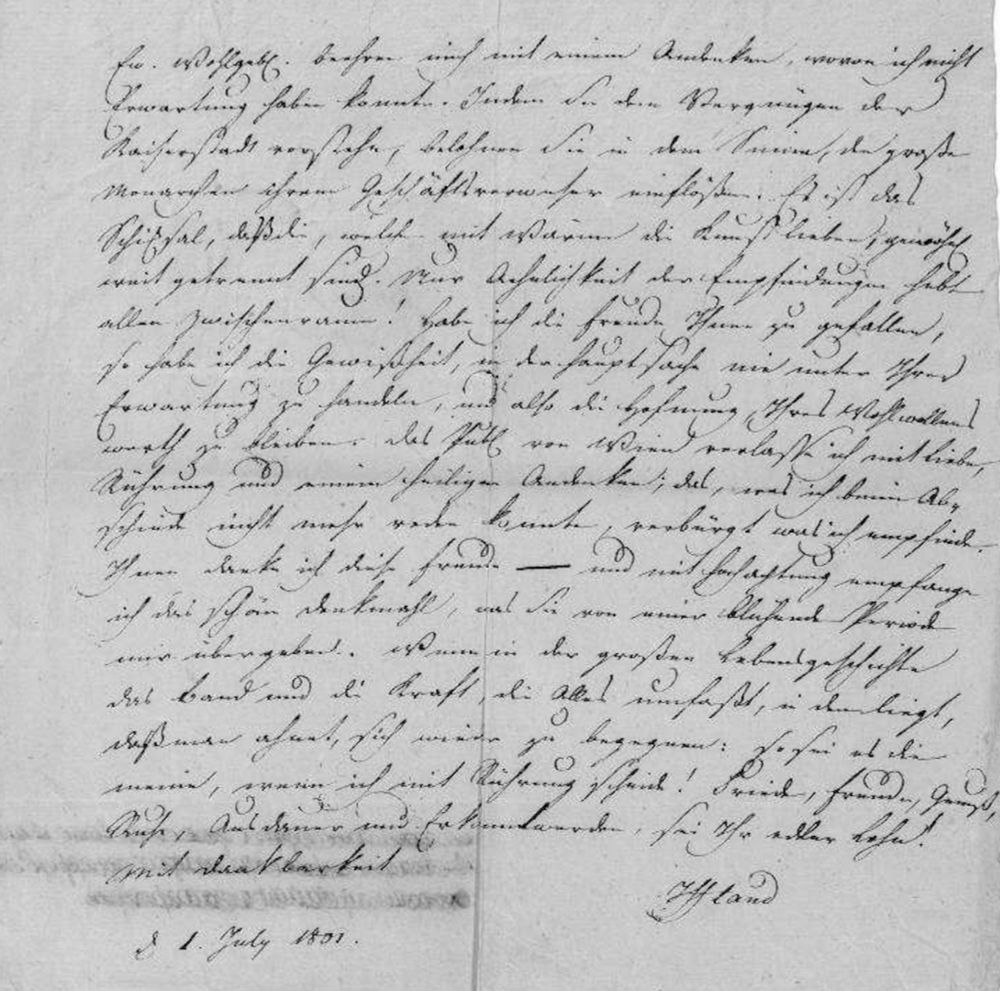 Ew. Wohlgeb. beehren mich mit einem Andenken, wovon ich nicht
Erwartung haben konnte. Indem Sie dem Vergnügen der
Kaiserstadt vorstehn, belohnen Sie in dem Sinne, den große
Monarchen ihrem Geschäftsverweser einflößen. Es ist das
Schiksal, daß die, welche mit Wärme die Kunst lieben, gewöhnl
weit getrennt sind. Nur Aehnlichkeit der Empfindungen hebt
allen Zwischenraum! Habe ich die Freude Ihnen zu gefallen,
so habe ich die Gewißheit, in der Hauptsache nie unter Ihrer
Erwartung zu handeln, und also die Hofnung, Ihres Wohlwollens
werth zu bleiben. Das Publ von Wien verlasse ich mit Liebe,
Rührung und einem heiligen Andenken; das, was ich beim Ab-
schiede nicht mehr reden konnte, verbürgt was ich empfinde.
Ihnen danke ich diese Freude — und mit Hochachtung empfange
ich das schöne Denkmahl, was Sie von einer blühenden Periode
mir übergeben. Wenn in der großen Lebensgeschichte
das Band und die Kraft, die Alles umfaßt, in dem liegt,
daß man ahnet, sich wieder zu begegnen: so sei es die
meine, wenn ich mit Rührung scheide! Friede, Freude, Genuß,
Ruhe, Ausdauer und Erkanntwerden, sei Ihr edler Lohn!
Mit Dankbarkeit
Iffland
d 1. July 1801.